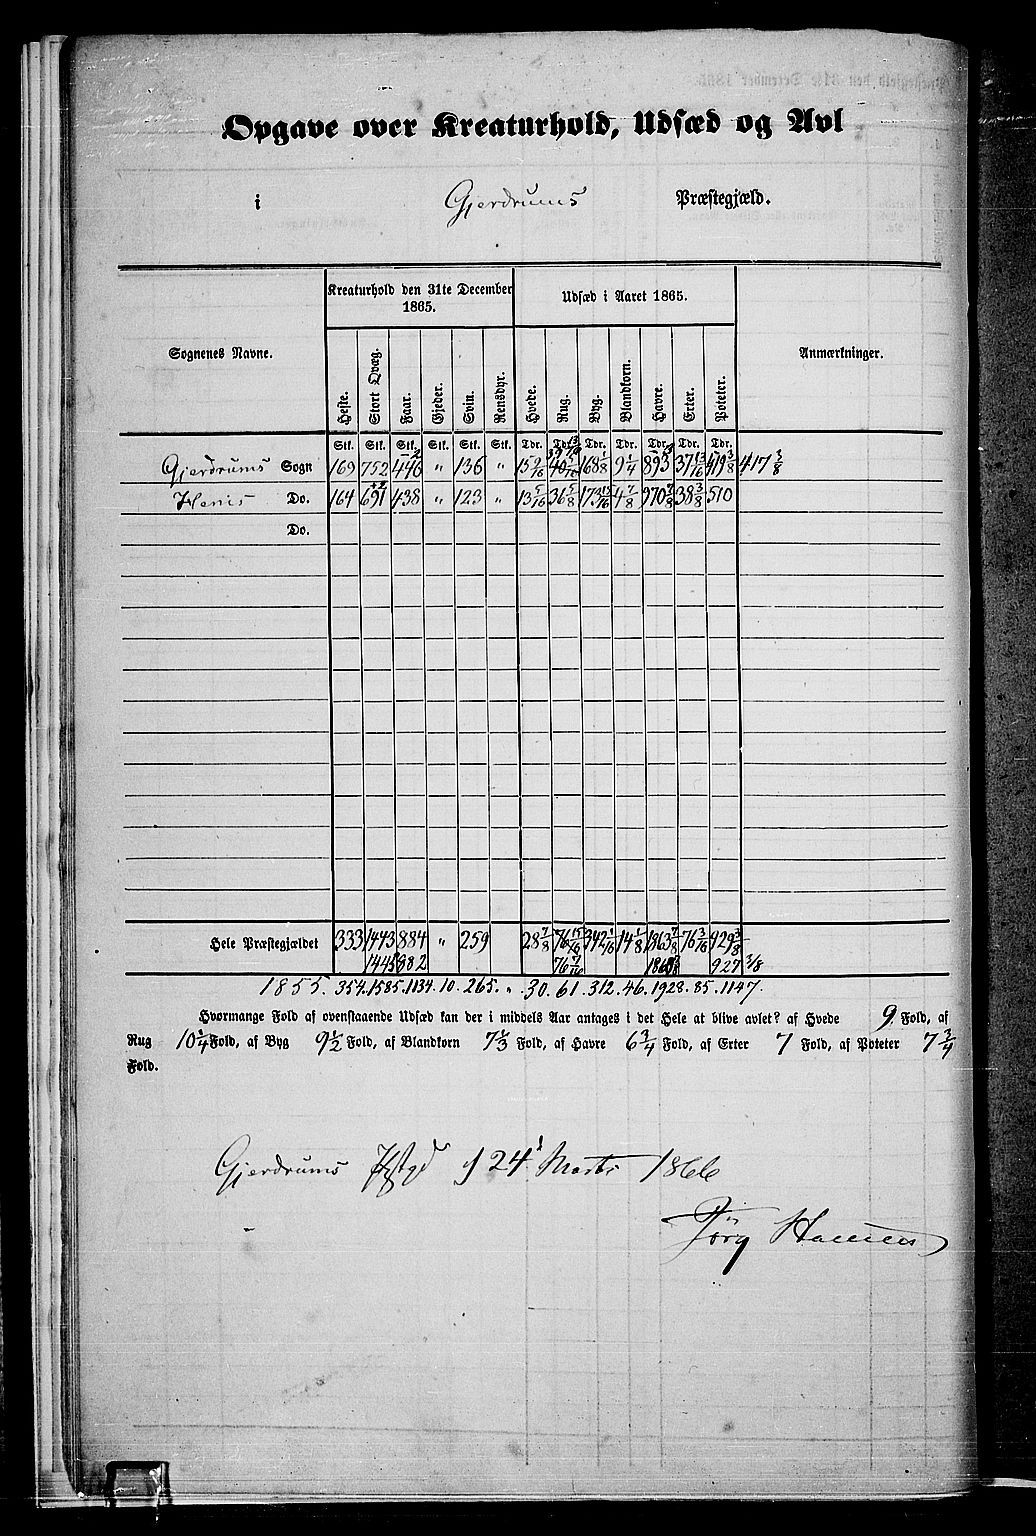 Opgave over Kreaturhold, Udsæd og Avl
i Gjerdrums Præstegjæld.
Sognenes Navne. Kreaturhold den 31te December 1865. Udsæd i Aaret 1865. Anmærkninger.
Heste. Stort Qvæg. Faar. Gjeder. Svin. Rensdyr. Hvede. Rug. Byg. Blandkorn. Havre. Erter. Poteter.
Stk. Stk. Stk. Stk. Stk. Stk. Tdr. Tdr. Tdr. Tdr. Tdr. Tdr. Tdr.
Gjerdrums Sogn 169 752 446 " 136 " 15 9/16 40 5/16 168 1/8 9 1/4 893 37 13/16 419 3/8 417 3/8
Do. 164 691 438 " 123 " 13 5/16 36 5/8 173 15/16 4 7/8 970 7/8 38 3/8 510
Do.
Hele Præstegjældet 333 1443 884 " 259 28 7/8 76 15/16 342 1/16 14 1/8 1863 7/8 76 3/16 929 3/8
1445 882 76 7/16 927 3/8
1855. 354. 1585. 1134. 10. 265. " 30. 61. 312. 46. 1928. 85. 1147.
Hvormange Fold af ovenstaaende Udsæd kan der i middels Aar antages i det Hele at blive avlet? af Hvede 9 Fold, af
Rug 10 1/4 Fold, af Byg 9 1/2 Fold, af Blandkorn 7 1/3 Fold, af Havre 6 3/4 Fold, af Erter 7 Fold, af Poteter 7 3/4
Fold.
Gjerdrums 24 Marts 1866
Jörg Hansen